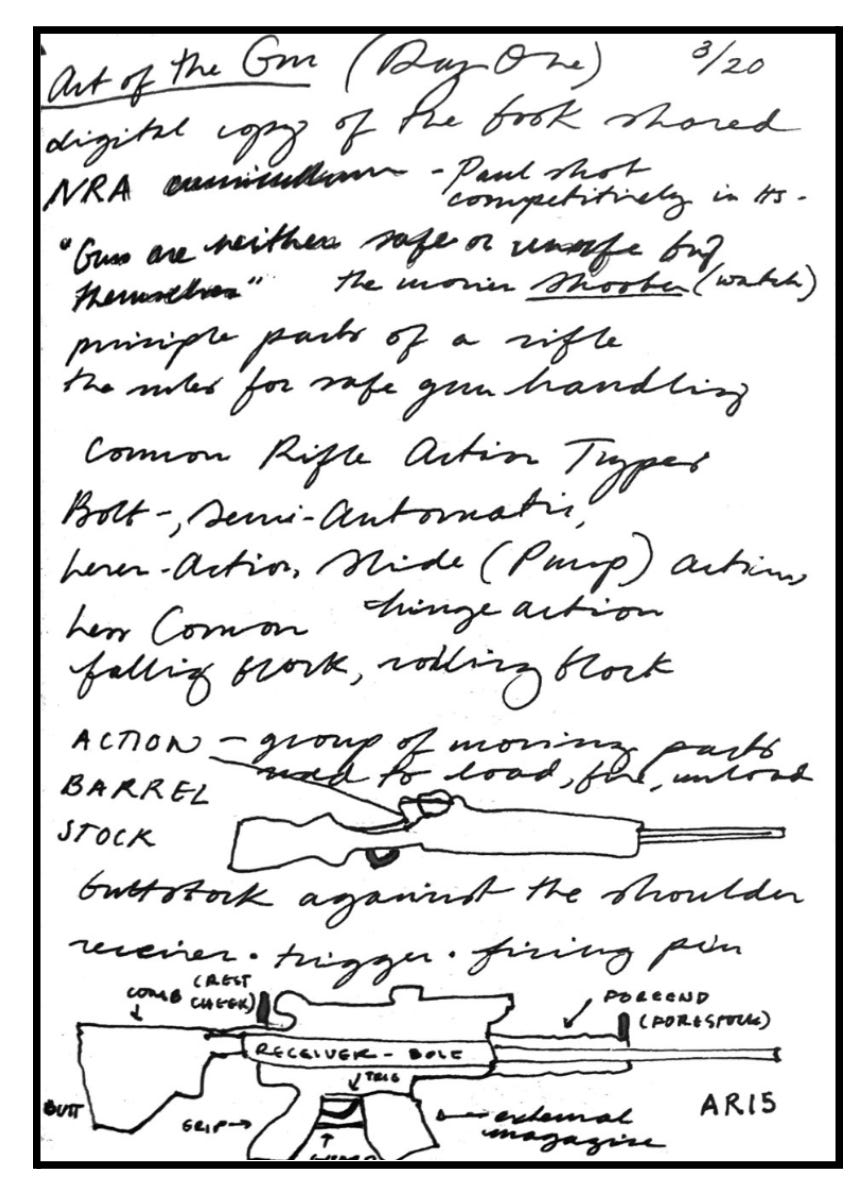 Art of the Gun (Day One) 3/20
digital copy of the book shared
NRA curriculum - Paul shot
competitively in HS -
"Guns are neither safe or unsafe by
themselves" the movie Shooter (watch)
principle parts of a rifle
the rules for safe gun handling
Common Rifle Action Types
Bolt-, Semi-Automatic,
Lever-Action, Slide (Pump) action,
hinge action
Less Common
falling block, rolling block
ACTION - group of moving parts
used to load, fire, unload
BARREL
STOCK
buttstock against the shoulder
receiver · trigger · firing pin
COMB (REST
CHEEK)
FOREEND
(FORESTOCK)
RECEIVER - BOLT
TRIG
BUTT
GRIP
GUARD
external
magazine
AR15